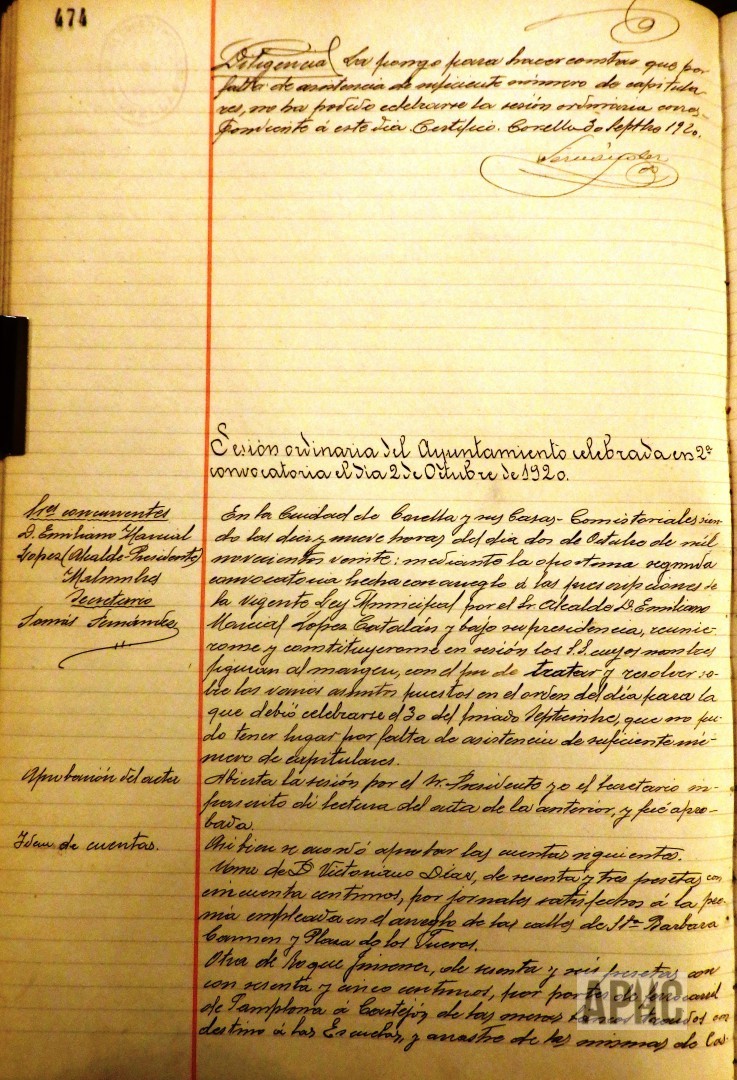 474
Diligencia La pongo para hacer constar que por
falta de asistencia de suficiente número de capitula-
res, no ha podido celebrarse la sesión ordinaria corres-
pondiente á este dia. Certifico. Corella 30 Septbre 1920.
Sesión ordinaria del Ayuntamiento celebrada en 2ª
convocatoria el dia 2 de Octubre de 1920.
Sres concurrentes
D. Emiliano Marcial
Lopez (Alcalde-Presidente)
Secretario
Tomás
En la Ciudad de Corella y sus Casas-Consistoriales sien-
do las diez y nueve horas del dia dos de Octubre de mil
novecientos veinte: mediante la oportuna segunda
convocatoria hecha con arreglo á las prescripciones de
la vigente Ley Municipal por el Sr. Alcalde D. Emiliano
Marcial Lopez Catalán y bajo su presidencia, reunie-
ronse y constituyeronse en sesión los S.S. cuyos nombres
figuran al margen, con el fin de tratar y resolver so-
bre los varios asuntos puestos en el orden del dia para la
que debió celebrarse el 30 del finado Septiembre, que no pu-
do tener lugar por falta de asistencia de suficiente nú-
mero de capitulares.
Aprobación del acta
Abierta la sesión por el Sr. Presidente yo el Secretario in-
frascrito di lectura del acta de la anterior, y fué apro-
bada.
Idem de cuentas.
Asi bien se acordó aprobar las cuentas siguientes.
Una de D. Victoriano Diaz, de sesenta y tres pesetas con
cincuenta centimos, por jornales satisfechos á la peo-
nia empleada en el arreglo de las calles de Sta Barbara
Carmen y Plaza de los Fueros.
Otra de Roque Jimenez, de sesenta y seis pesetas con
con sesenta y cinco centimos, por portes de ferrocarril
de Pamplona á Castejón de las mesas bancos traidos con
destino á las Escuelas, y arrastre de las mismas de la
APHC